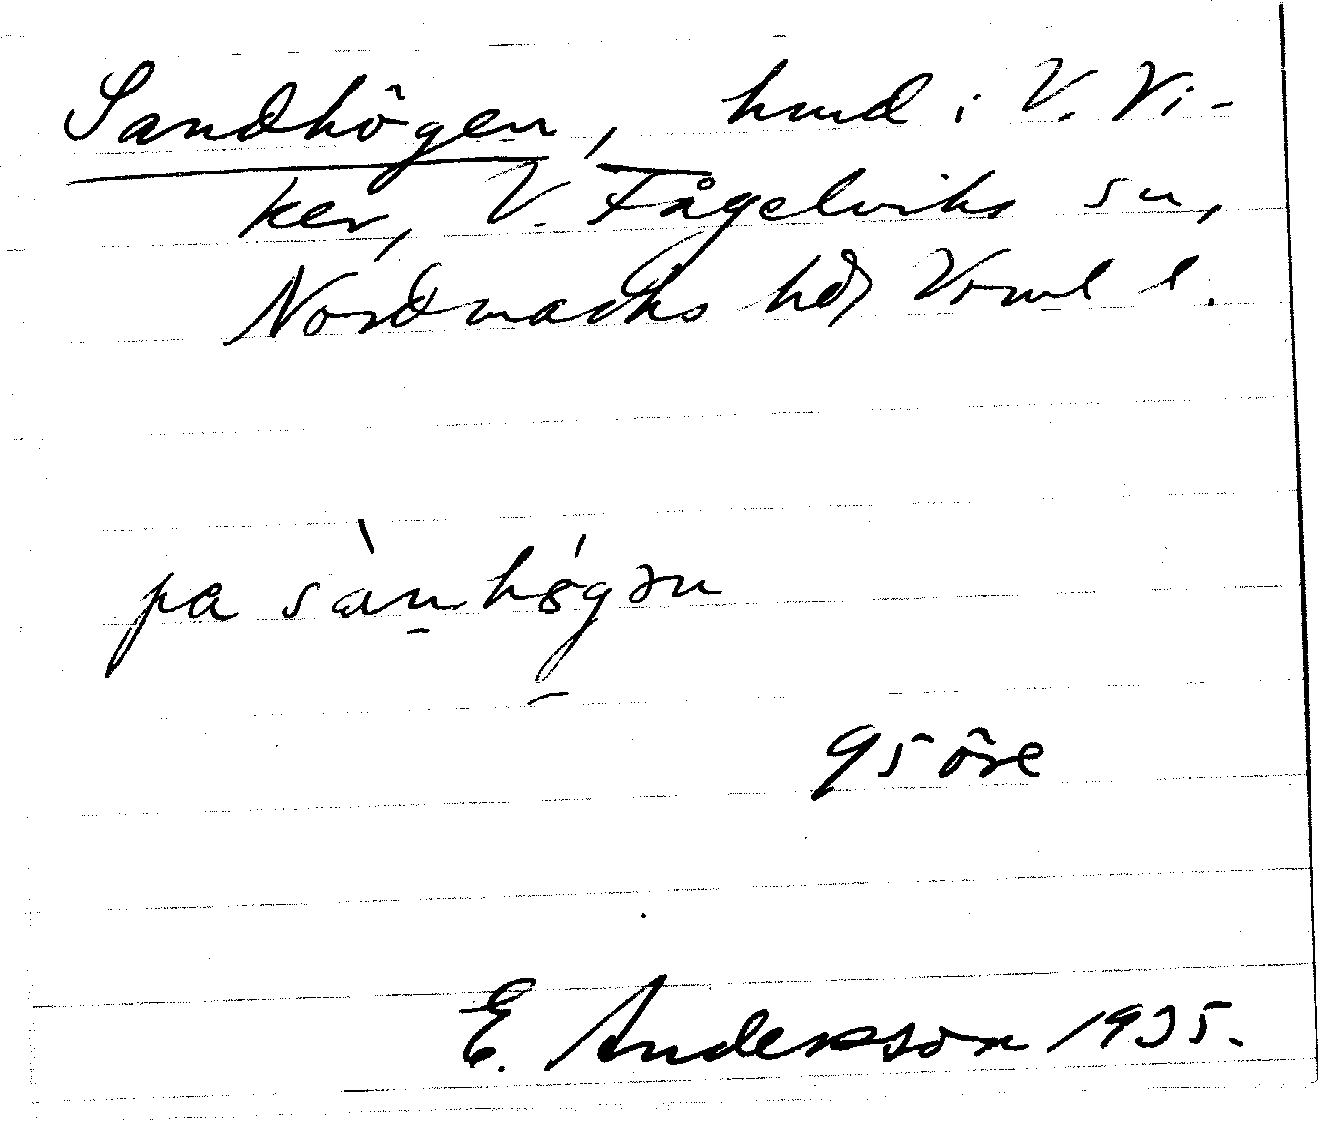 Sandhögen, hmd i V. Vi-
ker, V. Fågelviks sn,
Nordmarks hd, Vrml l.
pa sànhǿgən
95 öre
E. Andersson 1935.